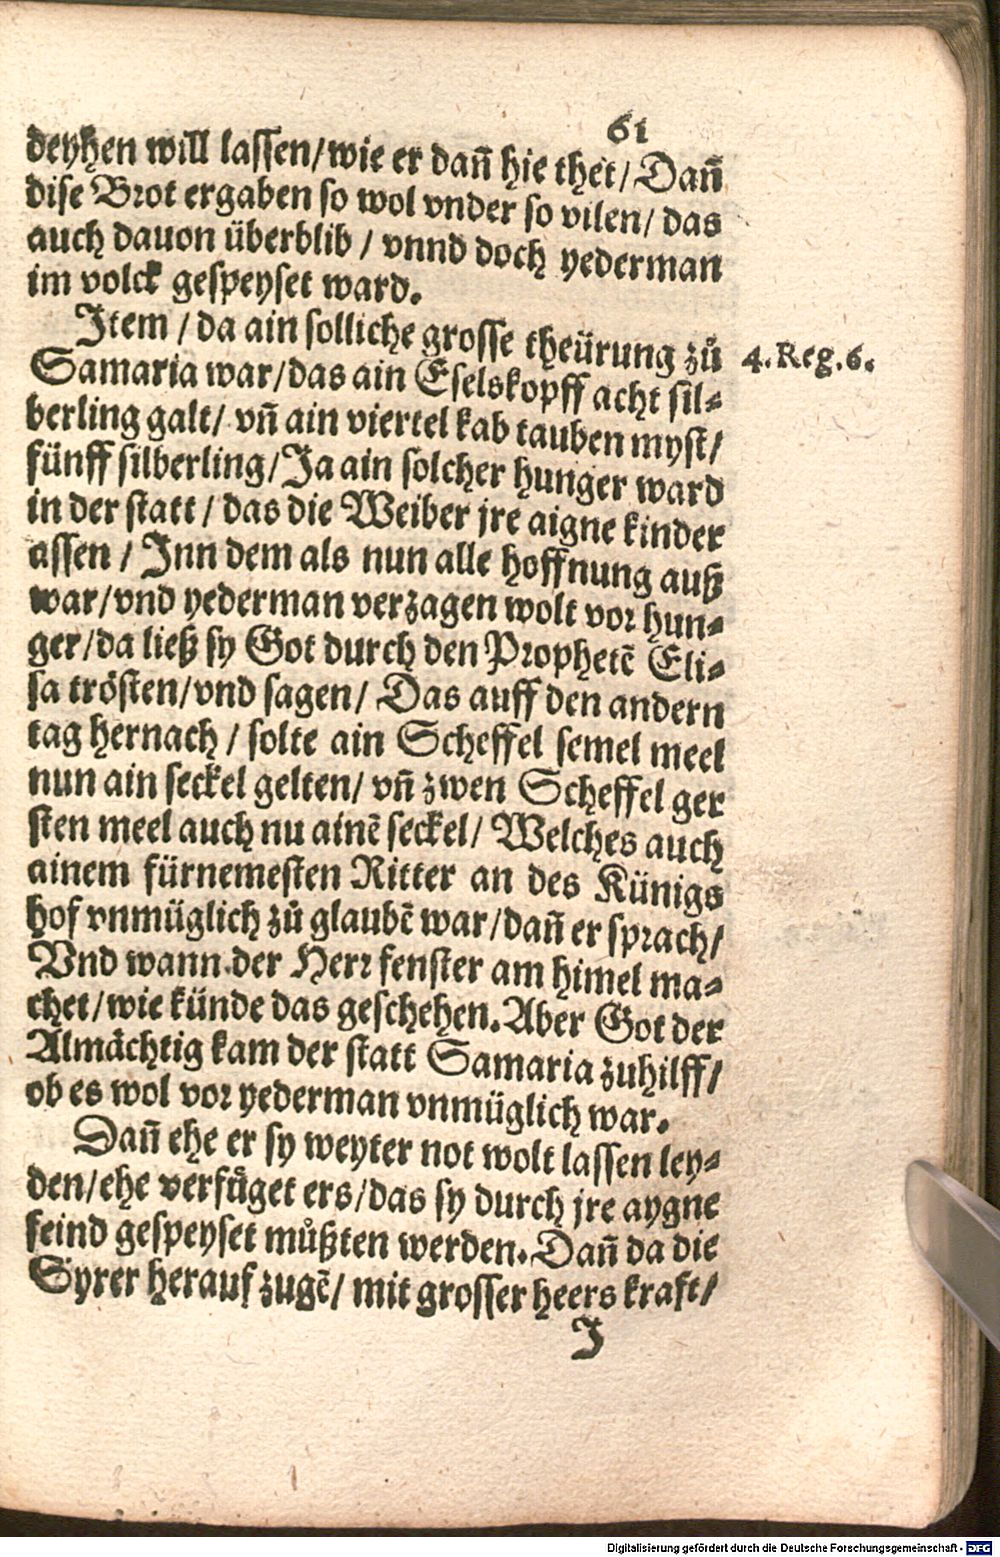 61
deyhen will lassen/wie er dañ hie thet/Dañ
dise Brot ergaben so wol vnder so vilen/ das
auch dauon überblib / vnnd doch yederman
im volck gespeyset ward.
Item / da ain solliche grosse theürung zů
4. Reg. 6.
Samaria war/das ain Eselskopff acht sil⸗
berling galt/ vñ ain viertel kab tauben myst/
fünff silberling/Ja ain solcher hunger ward
in der statt / das die Weiber jre aigne kinder
assen / Inn dem als nun alle hoffnung auß
war/vnd yederman verzagen wolt vor hun⸗
ger/da ließ sy Got durch den Prophetẽ Eli⸗
sa trösten/vnd sagen/ Das auff den andern
tag hernach / solte ain Scheffel semel meel
nun ain seckel gelten/ vñ zwen Scheffel ger
sten meel auch nu ainẽ seckel/ Welches auch
ainem fürnemesten Ritter an des Künigs
hof vnmüglich zů glaubẽ war/dañ er sprach/
Vnd wann der Herr fenster am himel ma⸗
chet/wie künde das geschehen. Aber Got der
Almächtig kam der statt Samaria zuhilff/
ob es wol vor yederman vnmüglich war.
Dañ ehe er sy weyter not wolt lassen ley⸗
den/ehe verfůget ers/das sy durch jre aygne
feind gespeyset můßten werden. Dañ da die
Syrer herauf zugẽ/ mit grosser heers kraft/
J
Digitalisierung gefördert durch die Deutsche Forschungsgemeinschaft - DFG